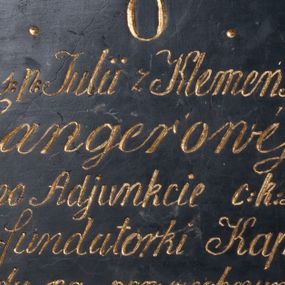 O
ś.p. Julii z Klemeńs
angerowéj
po Adjunkcie c.k.
fundatorki Kap